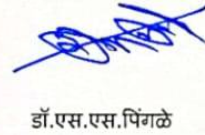 डॉ.एस.एस.पिंगळे